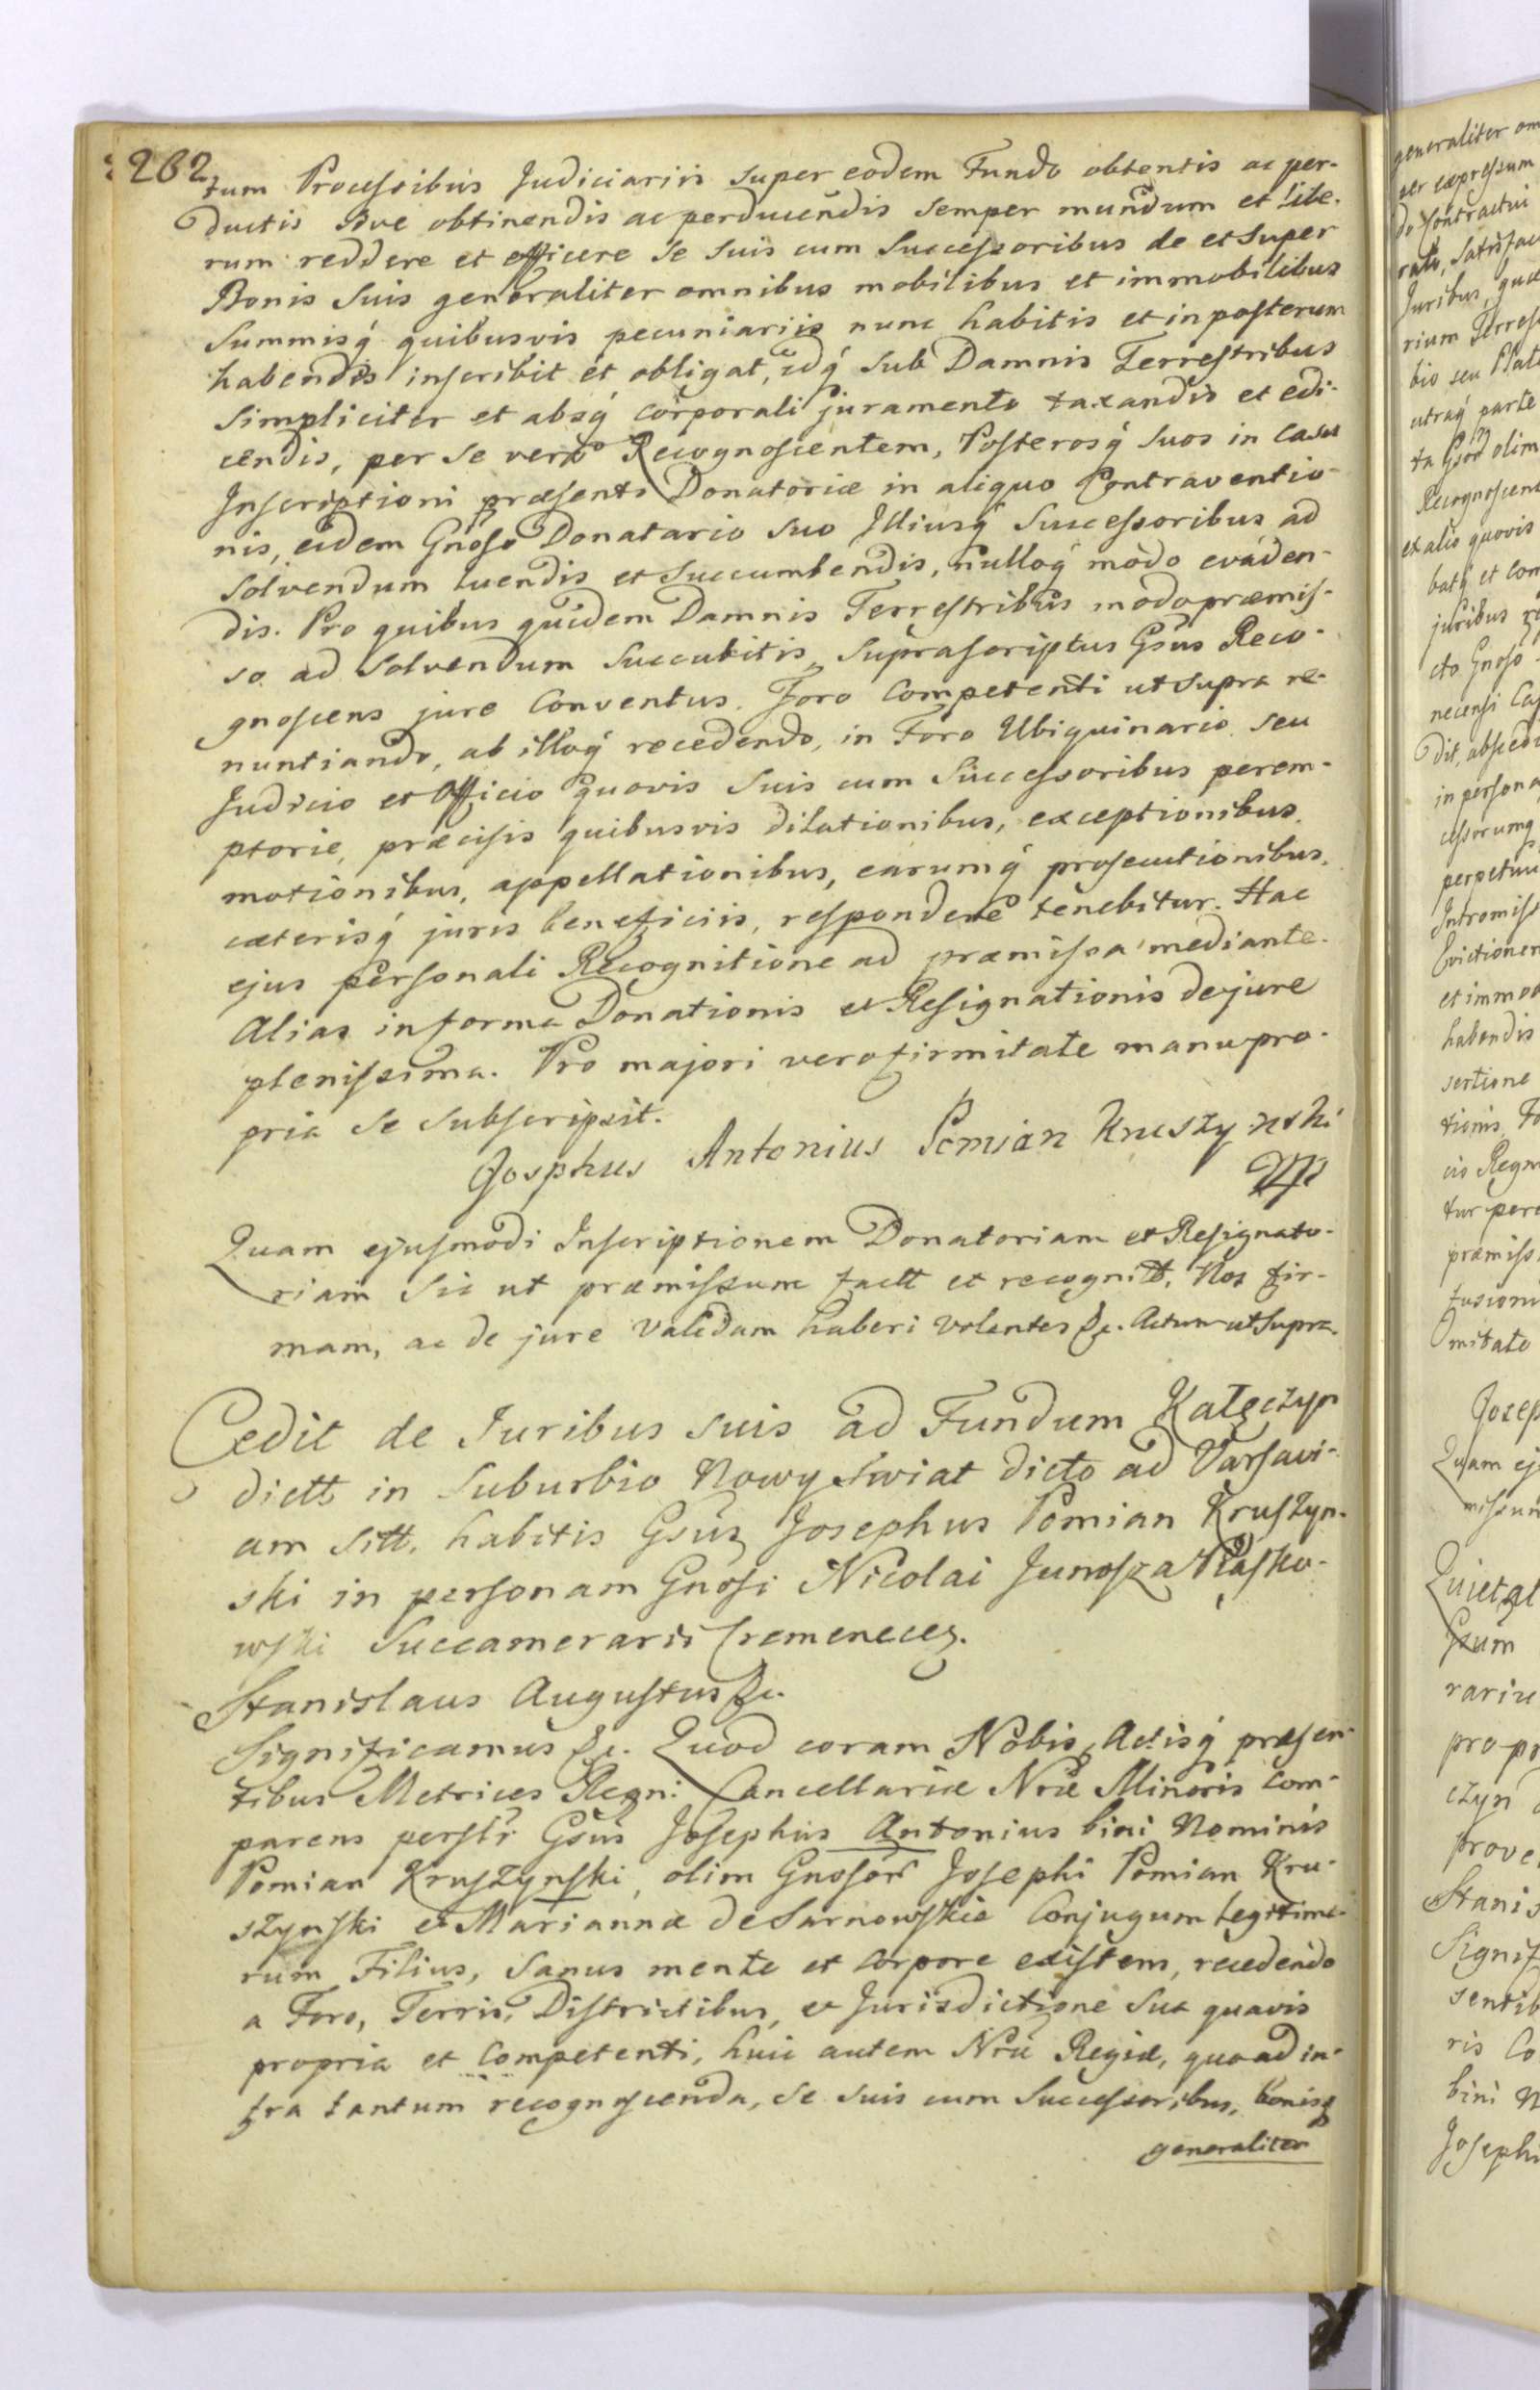 262
tum Processibus Judiciariis super eodem Fundo obtentis ac per-
ductis sive obtinendis ac perducendis semper mundum et libe-
rum reddere et efficere se suis cum Successoribus de et super
Bonis suis generaliter omnibus mobilibus et immobilibus
Summisq́ quibusvis pecuniariis nunc habitis et in posterum
habendis inscribit et obligat, idq́ sub Damnis Terrestribus
simpliciter et absq́ corporali juramento taxandis et edi-
cendis, per se vero Recognoscentem, Posterosq́ suos in casu
Inscriptioni præsenti Donatoriæ in aliquo Contraventio-
nis, eidem Gnoso Donatario suo Illiusq́ Successoribus ad
solvendum luendis et succumbendis, nulloq́ modo evaden-
dis. Pro quibus quidem Damnis Terrestribus modopræmis-
so ad solvendum succubitis, suprascriptus Gsus Reco-
gnoscens jure Conventus. Foro Competenti ut supra re-
nuntiando, ab illoq́ recedendo, in Foro Ubiquinario seu
Judicio et Officio quovis suis cum Successoribus perem-
ptorie, præcisis quibusvis dilationibus, exceptionibus.
motionibus, appellationibus, earumq́ prosecutionibus,
cæterisq́ juris beneficiis, respondere tenebitur. Hac
ejus personali Recognitione ad præmissa mediante.
Alias in forma Donationis et Resignationis de jure
plenissima. Pro majori vero firmitate manu pro-
pria se subscripsit.
Josphus Antonius Pomian Kruszynski
Mp
Quam ejusmodi Inscriptionem Donatoriam et Resignato-
riam sic ut præmissum factt et recognitt, Nos fir-
mam, ac de jure validam haberi volentes &c. Actum ut supra.
Cedit de Juribus suis ad Fundum Kałęczyn
dictt in Suburbio Nowy Swiat dicto ad Varsavi-
am sitt. habitis Gsus Josephus Pomian Kruszyn-
ski in personam Gnosi Nicolai Junosza Piasko-
wski Succamerarii Cremenecen.
Stanislaus Augustus &c.
Significamus &c. Quod coram Nobis, Actisq́ præsen-
tibus Metrices Regni Cancellariæ Nræ Minoris com-
parens perslr Gsus Josephus Antonius bini Nominis
Pomian Kruszynski, olim Gnosor Josephi Pomian Kru-
szynski et Mariannæ de Sarnowskie Conjugum legitimo-
rum Filius, sanus mente et corpore existens, recedendo
a Foro, Terris, Districtibus, et Jurisdictione sua quavis
propria et Competenti, huic autem Nræ Regiæ, quo ad in-
fra tantum recognoscenda, se suis cum Successoribus, bonisq́
generaliter
generaliter om
ser expressum
do Contractui
rato, satisfac
Juribus, quæ
rium Terrest
bio seu Plat
utraq́ parte
olim
Recognoscent
et alio quovis
batq́ et con
juribus
cto Gnoso
necensi
dit, abscedi
in persona
cessorumq́
perpetuu
Intromiss
Evictionem
et immo
habendis
sertione
tionis, Fo
cio Regn
tur per
præmiss
fusioni
mitate
Josep
Quam ej
missum
Quietat
Gsum
rariu
pro pr
czyn
prove
Stanis
Signif
sentib
ris Co
bini N
Josephi